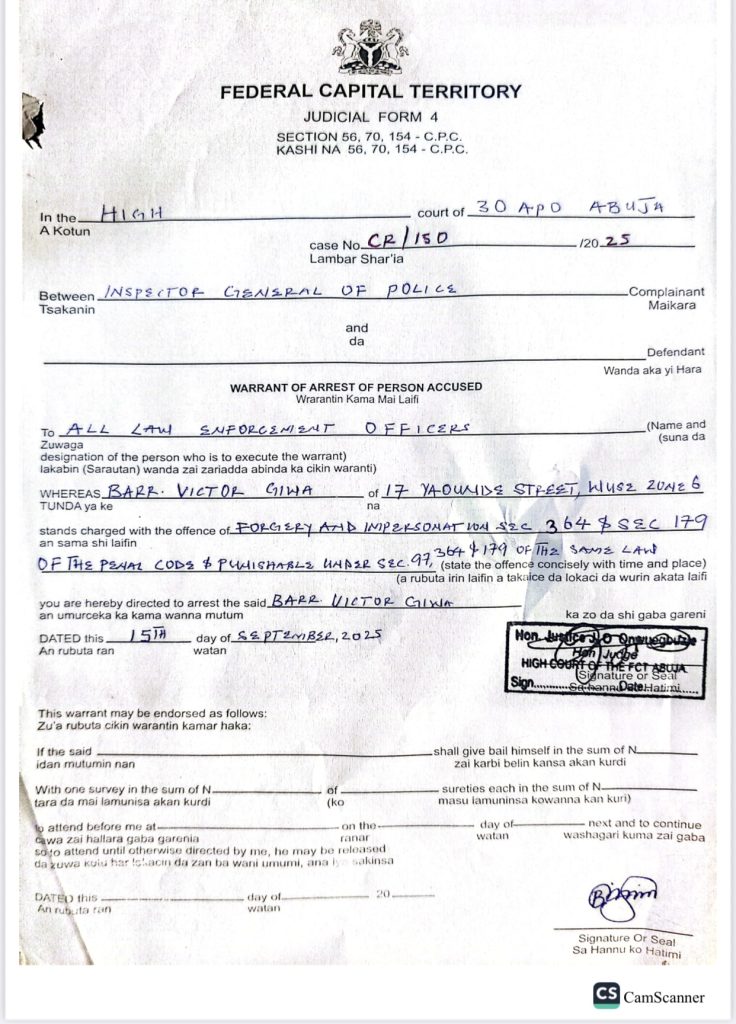 FEDERAL CAPITAL TERRITORY
JUDICIAL FORM 4
SECTION 56, 70, 154 - C.P.C.
KASHI NA 56, 70, 154 - C.P.C.
In the HIGH court of 30 APO ABUJA
A Kotun
case No. CR/150 /2025
Lambar Shar'ia
Between INSPECTOR GENERAL OF POLICE Complainant
Tsakanin Maikara
and
da
Defendant
Wanda aka yi Hara
WARRANT OF ARREST OF PERSON ACCUSED
Wrarantin Kama Mai Laifi
To ALL LAW ENFORCEMENT OFFICERS (Name and
Zuwaga (suna da
designation of the person who is to execute the warrant)
lakabin (Sarautan) wanda zai zariadda abinda ka cikin waranti)
WHEREAS BARR. VICTOR GIWA of 17 YAOUNDE STREET, WUSE ZONE 6
TUNDA ya ke na
stands charged with the offence of FORGERY AND IMPERSONATION SEC 364 & SEC 179
an sama shi laifin
OF THE PENAL CODE & PUNISHABLE UNDER SEC. 97, 364 & 179 OF THE SAME LAW (state the offence concisely with time and place)
(a rubuta irin laifin a takaice da lokaci da wurin akata laifi
you are hereby directed to arrest the said BARR. VICTOR GIWA
an umurceka ka kama wanna mutum ka zo da shi gaba gareni
DATED this 15TH day of SEPTEMBER, 2025
An rubuta ran watan
Hon. Justice J.O Onwuegbuzie
Hon Judge
HIGH COURT OF THE FCT ABUJA
Signature or Seal
Sign. Sa hannu Date Hatimi
This warrant may be endorsed as follows:
Zu'a rubuta cikin warantin kamar haka:
If the said shall give bail himself in the sum of N
idan mutumin nan zai karbi belin kansa akan kurdi
With one survey in the sum of N of sureties each in the sum of N
tara da mai lamunisa akan kurdi (ko masu lamuninsa kowanna kan kuri)
to attend before me at on the day of next and to continue
cawa zai hallara gaba garenia ranar watan washagari kuma zai gaba
so to attend until otherwise directed by me, he may be released
da zuwa kulu har lokacin da zan ba wani umumi, ana iya sakinsa
DATED this day of 20
An rubuta ran watan
Signature Or Seal
Sa Hannu ko Hatimi
CS CamScanner